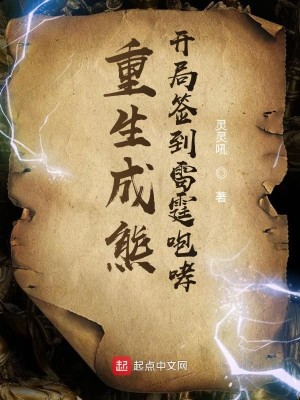 重生成熊
开局签到雷霆咆哮
灵灵吼◎著
起点中文网